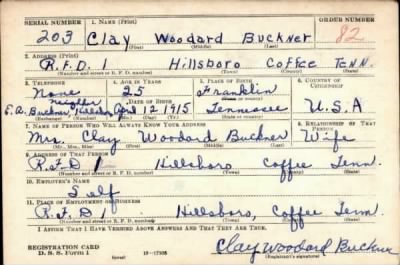 SERIAL NUMBER 1. NAME (Print) ORDER NUMBER
203 Clay Woodard Buckner 82
(First) (Middle) (Last)
2. ADDRESS (Print)
R.F.D. 1 Hillsboro Coffee TENN.
(Number and street or R. F. D. number) (Town) (County) (State)
3. TELEPHONE 4. AGE IN YEARS 5. PLACE OF BIRTH 6. COUNTRY OF CITIZENSHIP
None 25 Franklin
neighbor DATE OF BIRTH (Town or county)
E.A. Buckner, April 12 1915 Tennessee U.S.A
(Exchange) (Number) (Mo.) (Day) (Yr.) (State or country)
7. NAME OF PERSON WHO WILL ALWAYS KNOW YOUR ADDRESS 8. RELATIONSHIP OF THAT PERSON
Mrs. Clay Woodard Buckner Wife
(Mr., Mrs., Miss) (First) (Middle) (Last)
9. ADDRESS OF THAT PERSON
R.F.D. 1 Hillsboro Coffee Tenn.
(Number and street or R. F. D. number) (Town) (County) (State)
10. EMPLOYER'S NAME
Self
11. PLACE OF EMPLOYMENT OR BUSINESS
R.F.D. 1. Hillsboro, Coffee Tenn.
(Number and street or R. F. D. number) (Town) (County) (State)
I AFFIRM THAT I HAVE VERIFIED ABOVE ANSWERS AND THAT THEY ARE TRUE.
REGISTRATION CARD
D. S. S. Form 1 Clay Woodard Buckner
(Registrant's signature)